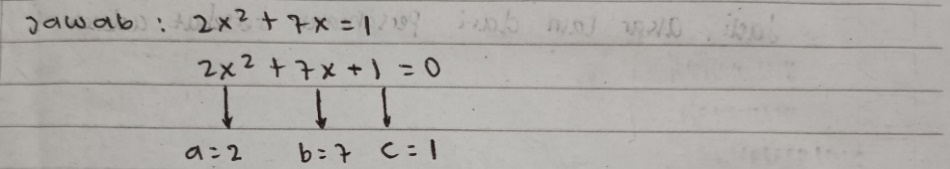 Jawab : 2x² + 7x = 1
2x² + 7x + 1 = 0
↓ ↓ ↓
a = 2 b = 7 c = 1